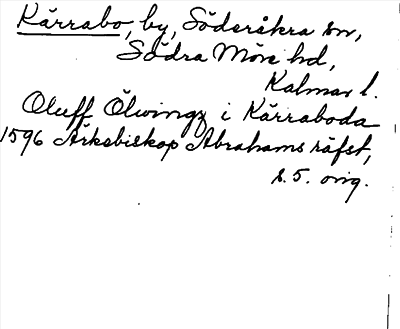 Kärrabo, by, Söderåkra sn,
Södra Möre hd,
Kalmar l.
Oluff Ölwingz i Kärraboda
1596 Ärkebiskop Abrahams räfst,
s. 5. orig.